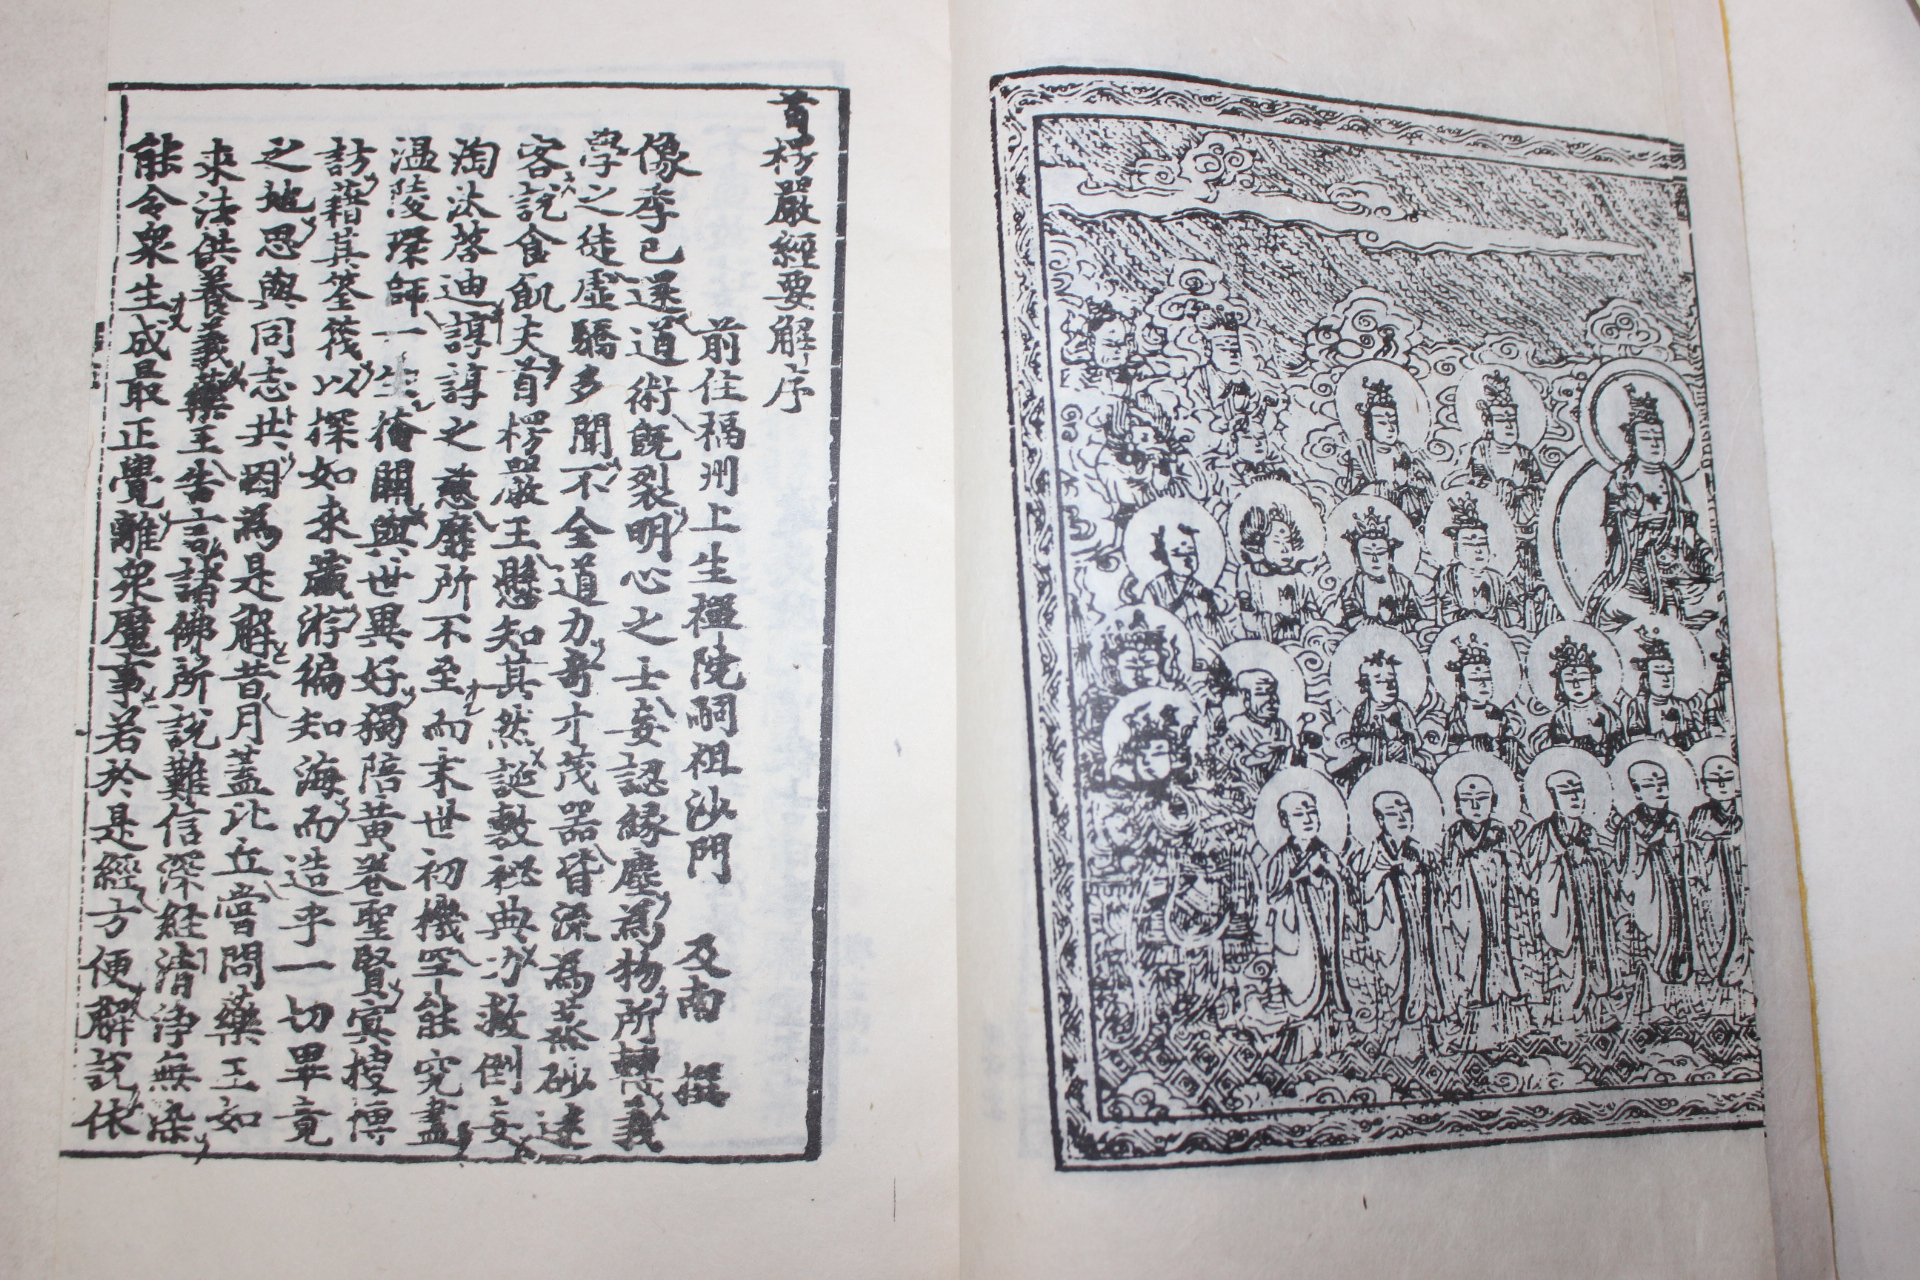 首楞嚴經要解序
前住福州上生禪院嗣祖沙門 及南 撰
像季已還道術旣裂明心之士妄認緣塵爲物所轉義
學之徒虛驕多聞不全道力奇才茂器皆流爲蒸砂迷
客說食飢夫首楞嚴王懸知其然誕敷秘典力救倒妄
淘汰啓迪諄諄之慈靡所不至而末世初機罕能究盡
温陵環師一生禪關與世異好獨陪黃卷聖賢冥搜博
訪藉其筌筏以探如來藏游徧知海而造乎一切畢竟
之地思與同志共因爲是解昔月蓋比丘嘗問藥王如
來法供養義藥王告言諸佛所說難信深經清淨無染
能令衆生成最正覺離衆魔事若於是經方便解說依